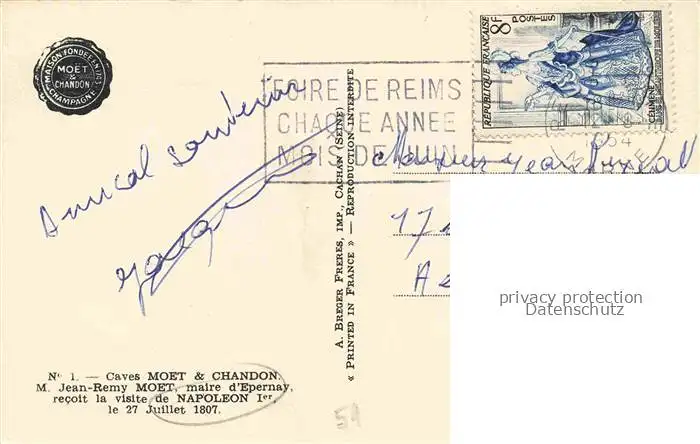 MAISON FONDÉE EN 1743
MOËT
& CHANDON
CHAMPAGNE
FOIRE DE REIMS
CHAQUE ANNEE
MOIS DE JUIN
8F
POSTES
REPUBLIQUE FRANÇAISE
CELIMENE
1954
Amical souvenir
Monsieur Jean
17
A. BREGER FRERES, IMP., CACHAN (SEINE)
« PRINTED IN FRANCE » — REPRODUCTION INTERDITE
privacy protection
Datenschutz
N° 1. — Caves MOET & CHANDON
M. Jean-Remy MOET, maire d'Epernay,
reçoit la visite de NAPOLEON Ier
le 27 Juillet 1807.
51